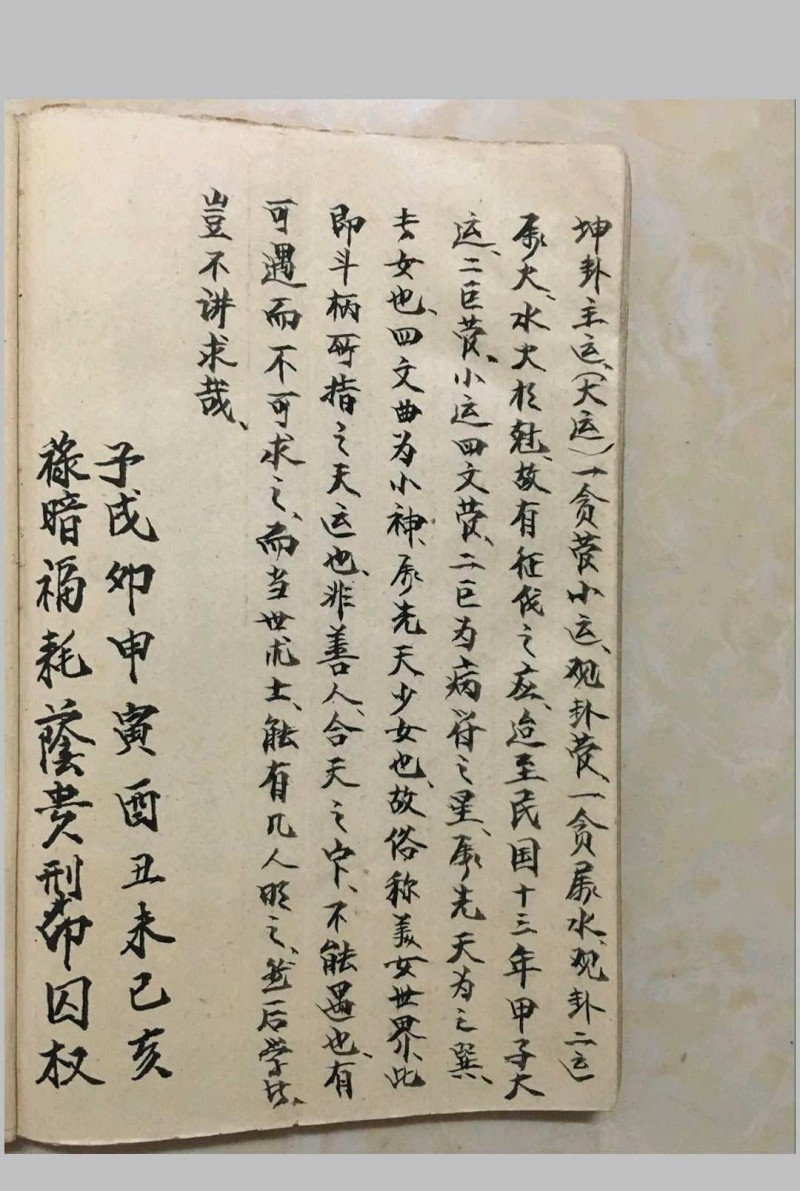 坤卦主运、(大运)一贪管小运、观卦管、一贪属水、观卦二运
属火、水火相尅、故有征伐之应、迨至民国十三年甲子大
运、二巨管、小运四文管、二巨为病符之星、属先天为之巽、
长女也、四文曲为小神、属先天少女也、故俗称美女世界、此
即斗柄所指之天运也、非善人、合天之、不能遇也、有
可遇而不可求之、而当世术士、能有几人明之、然后学者、
豈不讲求哉、
子戌卯申寅酉丑未巳亥
禄暗福耗蔭贵刑印囚权